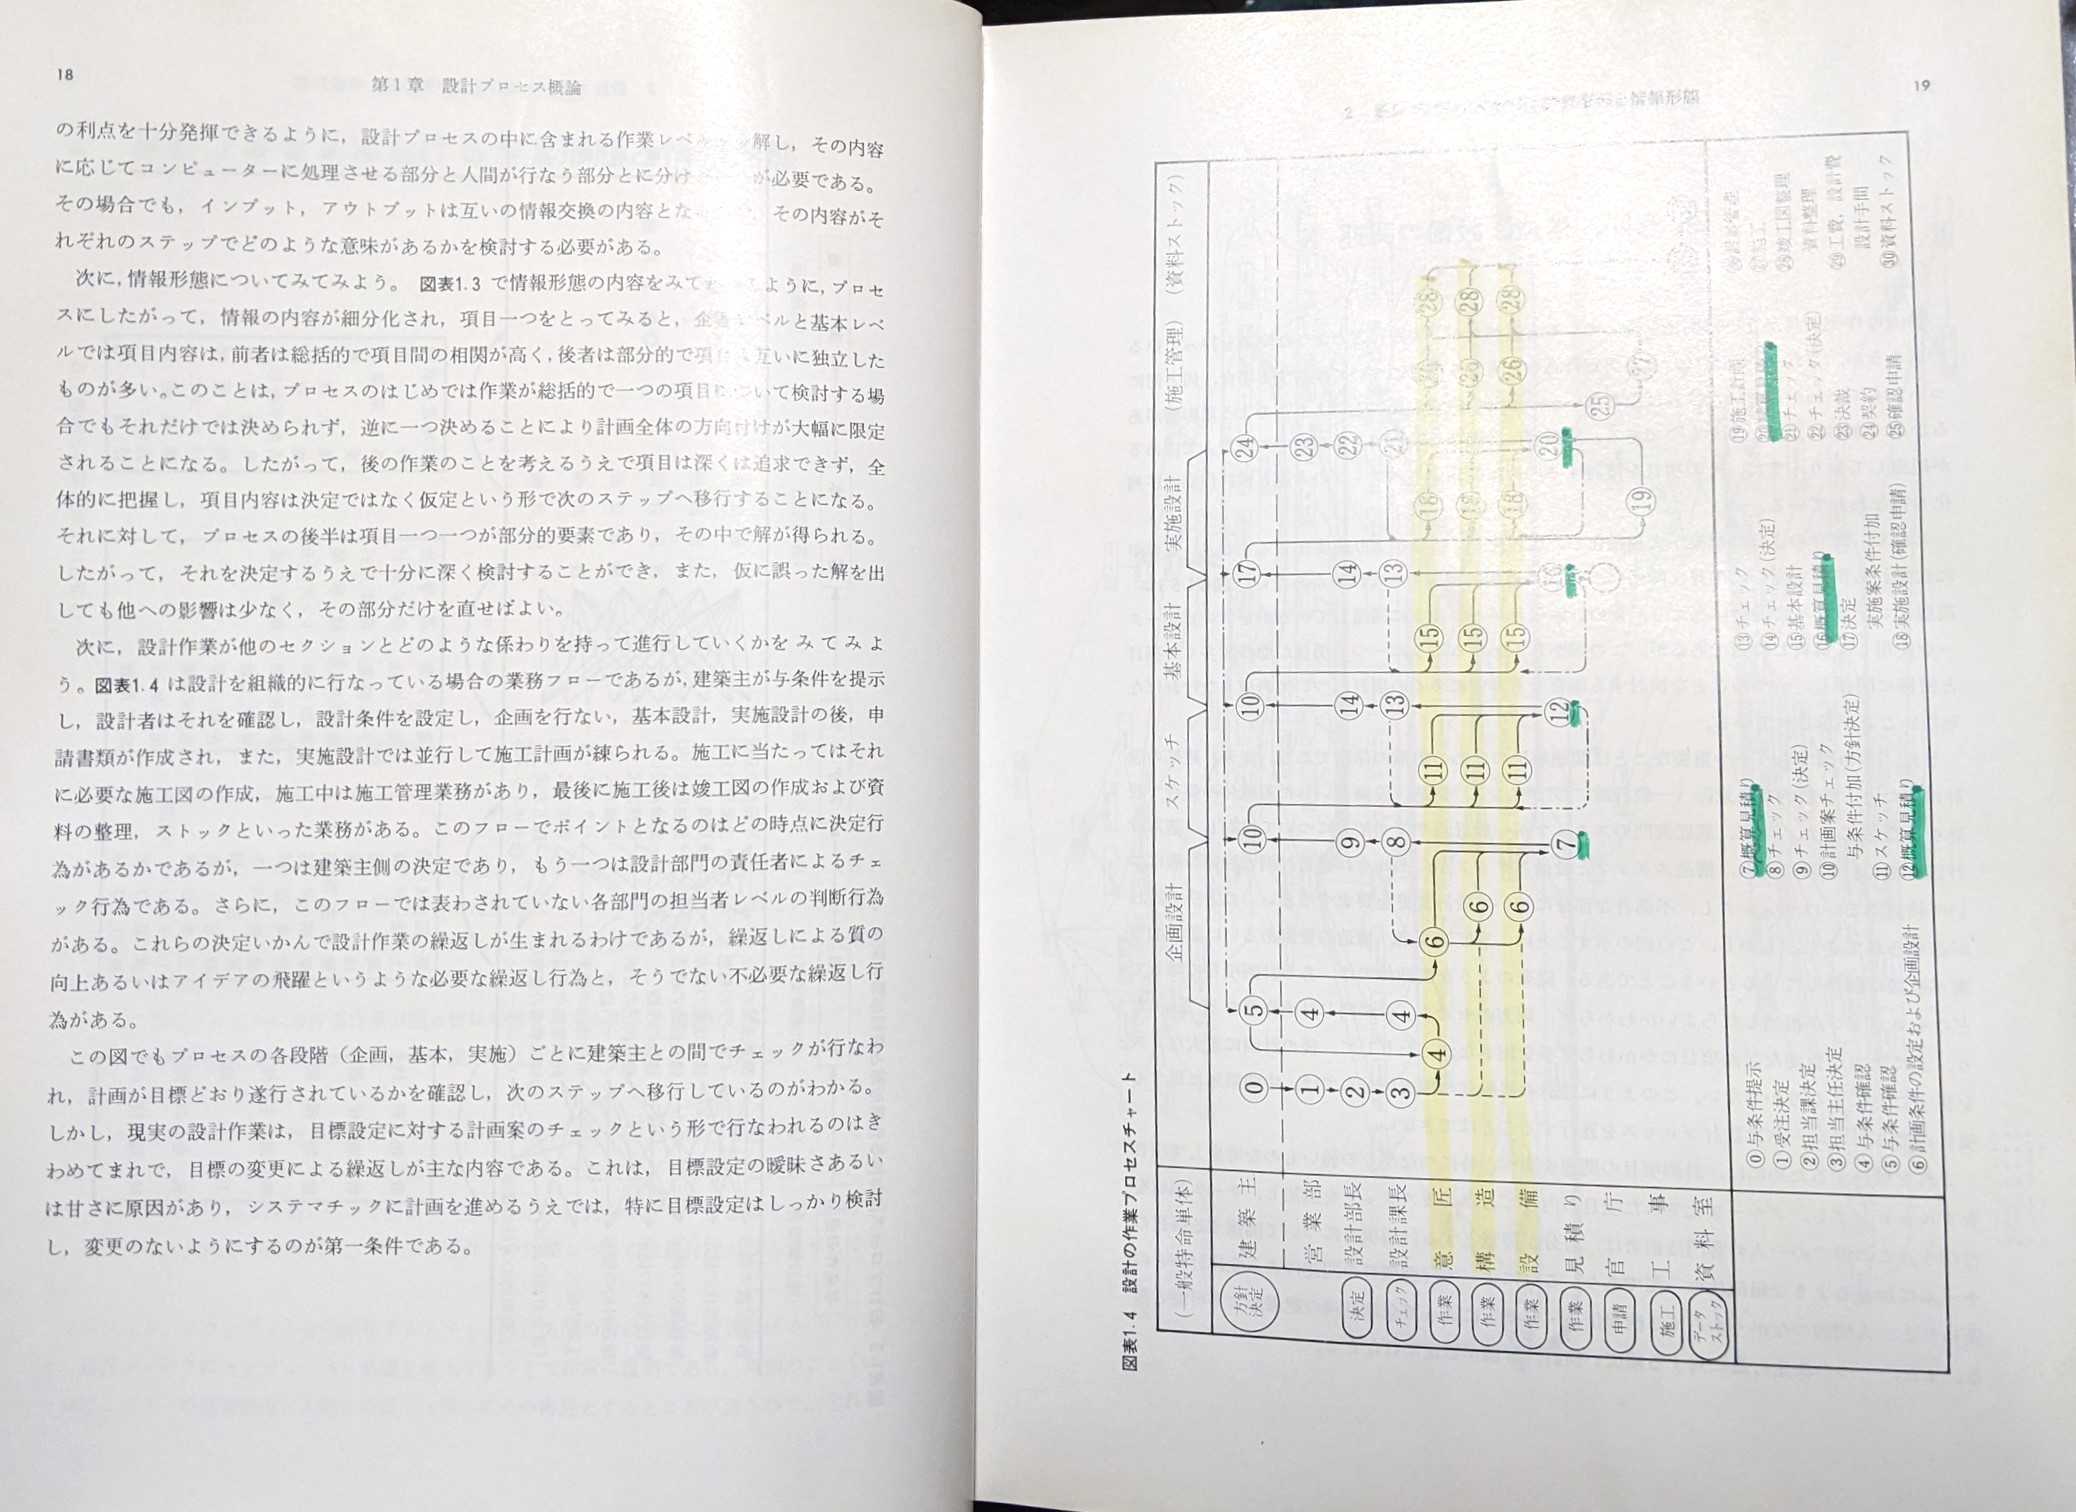 18
第1章 設計プロセス概論
の利点を十分発揮できるように，設計プロセスの中に含まれる作業レベ 解し，その内容
に応じてコンピューターに処理させる部分と人間が行なう部分とに分け が必要である。
その場合でも，インプット，アウトプットは互いの情報交換の内容とな その内容がそ
れぞれのステップでどのような意味があるかを検討する必要がある。
次に，情報形態についてみてみよう。 図表1.3 で情報形態の内容をみて ように，プロセ
スにしたがって，情報の内容が細分化され，項目一つをとってみると，企画レベルと基本レベ
ルでは項目内容は，前者は総括的で項目間の相関が高く，後者は部分的で項 互いに独立した
ものが多い。このことは，プロセスのはじめでは作業が総括的で一つの項目について検討する場
合でもそれだけでは決められず，逆に一つ決めることにより計画全体の方向付けが大幅に限定
されることになる。したがって，後の作業のことを考えるうえで項目は深くは追求できず，全
体的に把握し，項目内容は決定ではなく仮定という形で次のステップへ移行することになる。
それに対して，プロセスの後半は項目一つ一つが部分的要素であり，その中で解が得られる。
したがって，それを決定するうえで十分に深く検討することができ，また，仮に誤った解を出
しても他への影響は少なく，その部分だけを直せばよい。
次に，設計作業が他のセクションとどのような係わりを持って進行していくかをみてみよ
う。図表1.4 は設計を組織的に行なっている場合の業務フローであるが，建築主が与条件を提示
し，設計者はそれを確認し，設計条件を設定し，企画を行ない，基本設計，実施設計の後，申
請書類が作成され，また，実施設計では並行して施工計画が練られる。施工に当たってはそれ
に必要な施工図の作成，施工中は施工管理業務があり，最後に施工後は竣工図の作成および資
料の整理，ストックといった業務がある。このフローでポイントとなるのはどの時点に決定行
為があるかであるが，一つは建築主側の決定であり，もう一つは設計部門の責任者によるチェ
ック行為である。さらに，このフローでは表わされていない各部門の担当者レベルの判断行為
がある。これらの決定いかんで設計作業の繰返しが生まれるわけであるが，繰返しによる質の
向上あるいはアイデアの飛躍というような必要な繰返し行為と，そうでない不必要な繰返し行
為がある。
この図でもプロセスの各段階（企画，基本，実施）ごとに建築主との間でチェックが行なわ
れ，計画が目標どおり遂行されているかを確認し，次のステップへ移行しているのがわかる。
しかし，現実の設計作業は，目標設定に対する計画案のチェックという形で行なわれるのはき
わめてまれで，目標の変更による繰返しが主な内容である。これは，目標設定の曖昧さあるい
は甘さに原因があり，システマチックに計画を進めるうえでは，特に目標設定はしっかり検討
し，変更のないようにするのが第一条件である。
19
図表1.4 設計の作業プロセスチャート
（一般特命単体） 企画設計 スケッチ 基本設計 実施設計 （施工管理） （資料ストック）
方針決定 建築主 ⓪ ⑤ ⑩ ⑩ ⑰ ㉔
営業部 ① ④ ㉓
決定 設計部長 ② ⑨ ⑭ ⑭ ㉒
チェック 設計課長 ③ ④ ⑧ ⑬ ⑬ ㉑
作業 意匠 ④ ⑥ ⑪ ⑮ ⑱ ㉘
作業 構造 ⑥ ⑪ ⑮ ⑱ ㉖ ㉘
作業 設備 ⑥ ⑪ ⑮ ⑱ ㉖ ㉘
作業 見積り ⑦ ⑫ ⑯ ⑳
申請 官庁 ㉕
施工 工事 ⑲ ㉗
データストック 資料室
⓪与条件提示
①受注決定
②担当課決定
③担当主任決定
④与条件確認
⑤与条件確認
⑥計画条件の設定および企画設計
⑦概算見積り
⑧チェック
⑨チェック（決定）
⑩計画案チェック
与条件付加（方針決定）
⑪スケッチ
⑫概算見積り
⑬チェック
⑭チェック（決定）
⑮基本設計
⑯概算見積り
⑰決定
実施案条件付加
⑱実施設計（確認申請）
⑲施工計画
⑳精算見積り
㉑チェック
㉒チェック（決定）
㉓決裁
㉔契約
㉕確認申請
㉗施工
㉘竣工図整理
資料整理
㉙工費，設計費
設計手間
㉚資料ストック